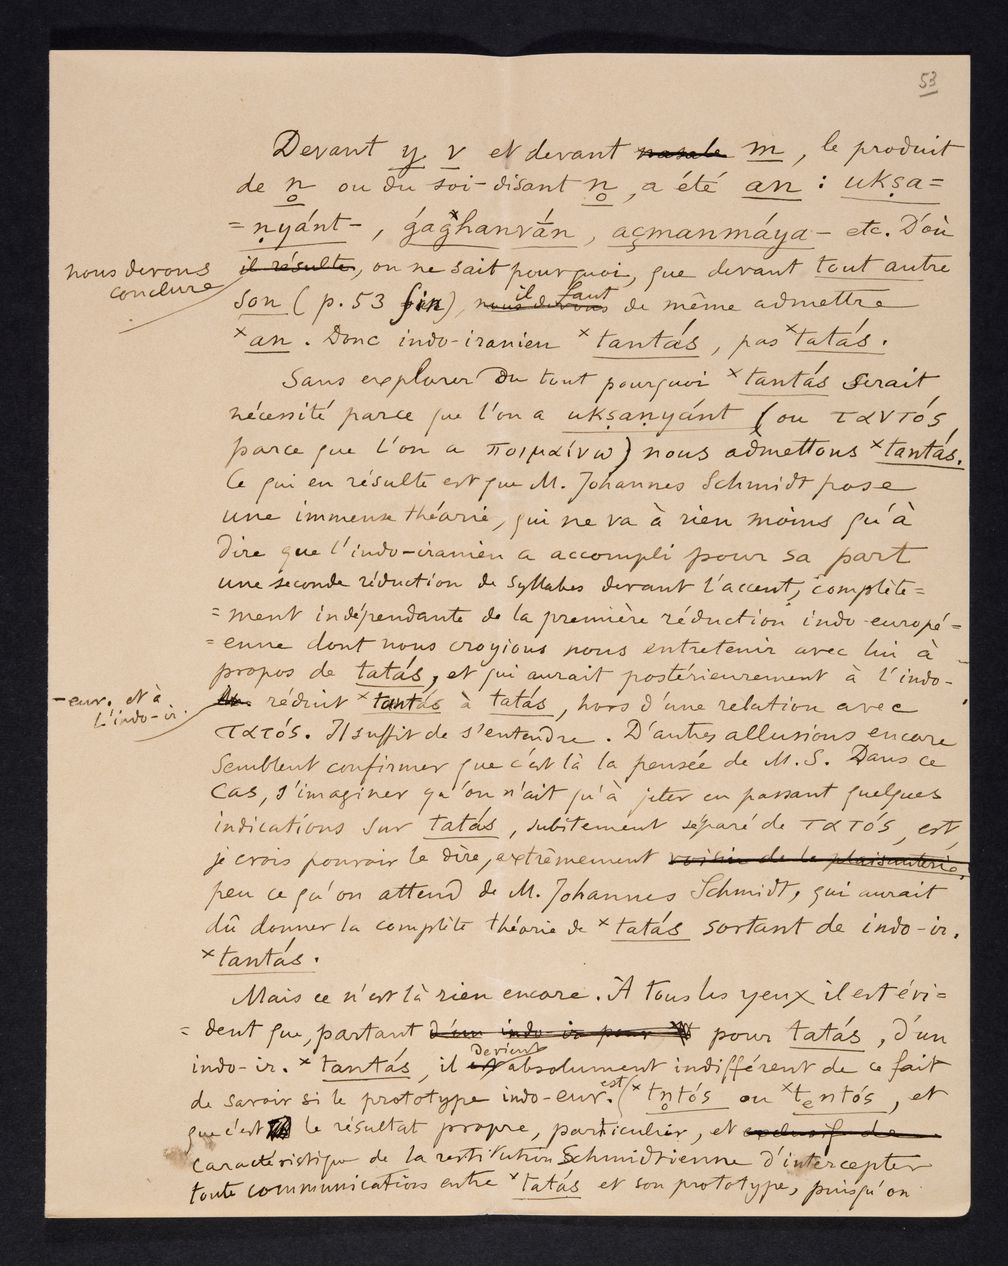 53
Devant y v et devant nasale m, le produit
de n̥ ou du soi-disant n̥, a été an : ukṣa=
=ṇyánt-, ǵaǧhanván, açmanmáya- etc. D'où
nous devons
conclure
il résulte, on ne sait pourquoi, que devant tout autre
son (p. 53 fin), nous devons il faut de même admettre
×an. Donc indo-iranien ×tantás, pas ×tatás.
Sans explorer du tout pourquoi ×tantás serait
nécessité parce que l'on a ukṣaṇyánt (ou ταντός
parce que l'on a ποιμαίνω) nous admettons ×tantás.
Ce qui en résulte est que M. Johannes Schmidt pose
une immense théorie, qui ne va à rien moins qu'à
dire que l'indo-iranien a accompli pour sa part
une seconde réduction de syllabes devant l'accent, complète=
=ment indépendante de la première réduction indo-europé=
=enne dont nous croyions nous entretenir avec lui à
propos de tatás, et qui aurait postérieurement à l'indo-
-eur. et à
l'indo-ir.
réduit ×tantás à tatás, hors d'une relation avec
τατός. Il suffit de s'entendre. D'autres allusions encore
semblent confirmer que c'est là la pensée de M. S. Dans ce
cas, s'imaginer qu'on n'ait qu'à jeter en passant quelques
indications sur tatás, subitement séparé de τατός, est,
je crois pouvoir le dire, extrêmement voisin de la plaisanterie.
peu ce qu'on attend de M. Johannes Schmidt, qui aurait
dû donner la complète théorie de ×tatás sortant de indo-ir.
×tantás.
Mais ce n'est là rien encore. À tous les yeux il est évi=
=dent que, partant d'un indo-ir pour pour tatás, d'un
indo-ir. ×tantás, il est devient absolument indifférent de ce fait
de savoir si le prototype indo-eur. est (×tn̥tós ou ×tₑntós, et
que c'est le résultat propre, particulier, et exclusif de
caractéristique de la restitution Schmidtienne d'intercepter
toute communication entre ×tatás et son prototype, puisqu'on